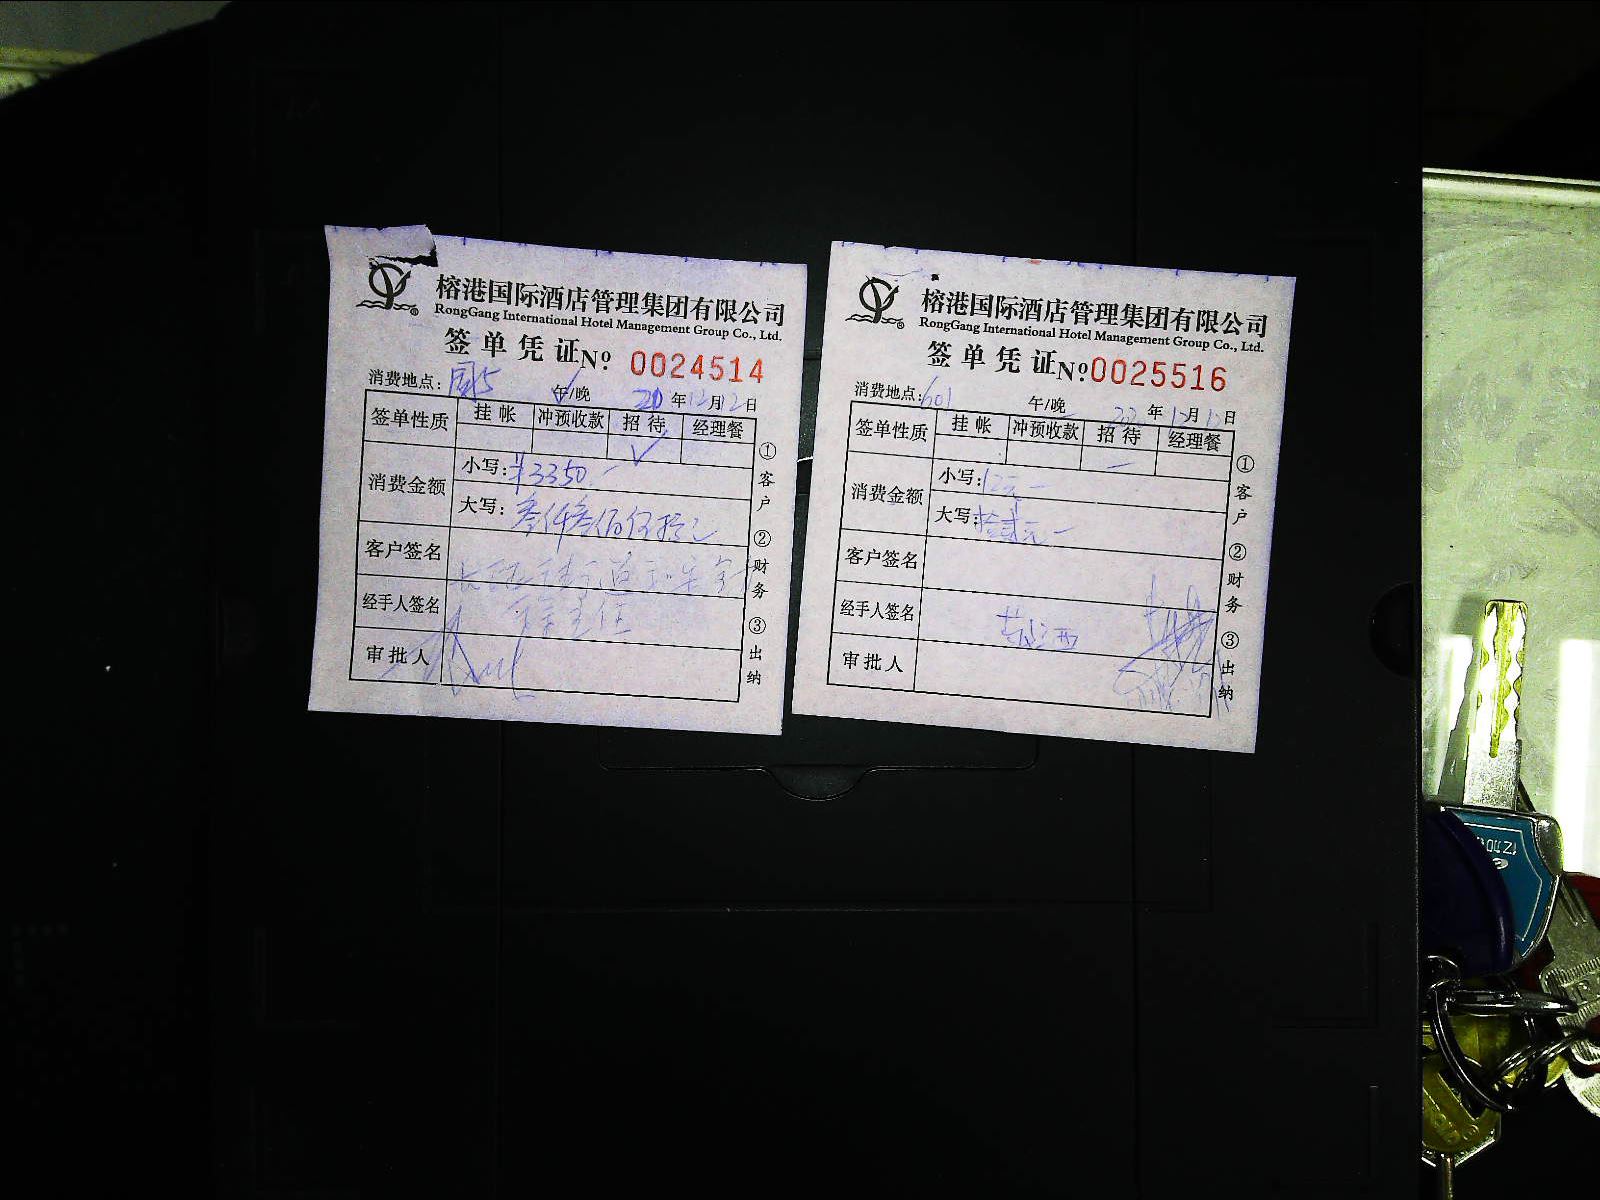 榕港国际酒店管理集团有限公司
RongGang International Hotel Management Group Co., Ltd.
签单凭证 Nº 0024514
消费地点: 午/晚 年12月12日
签单性质 挂帐 冲预收款 招待 经理餐
消费金额 小写:¥3350.-
大写:叁仟叁佰伍拾元
客户签名
经手人签名
审批人
①客户 ②财务 ③出纳
榕港国际酒店管理集团有限公司
RongGang International Hotel Management Group Co., Ltd.
签单凭证 Nº 0025516
消费地点:601 午/晚 年12月12日
签单性质 挂帐 冲预收款 招待 经理餐
消费金额 小写:12元-
大写:拾贰元-
客户签名
经手人签名
审批人
①客户 ②财务 ③出纳